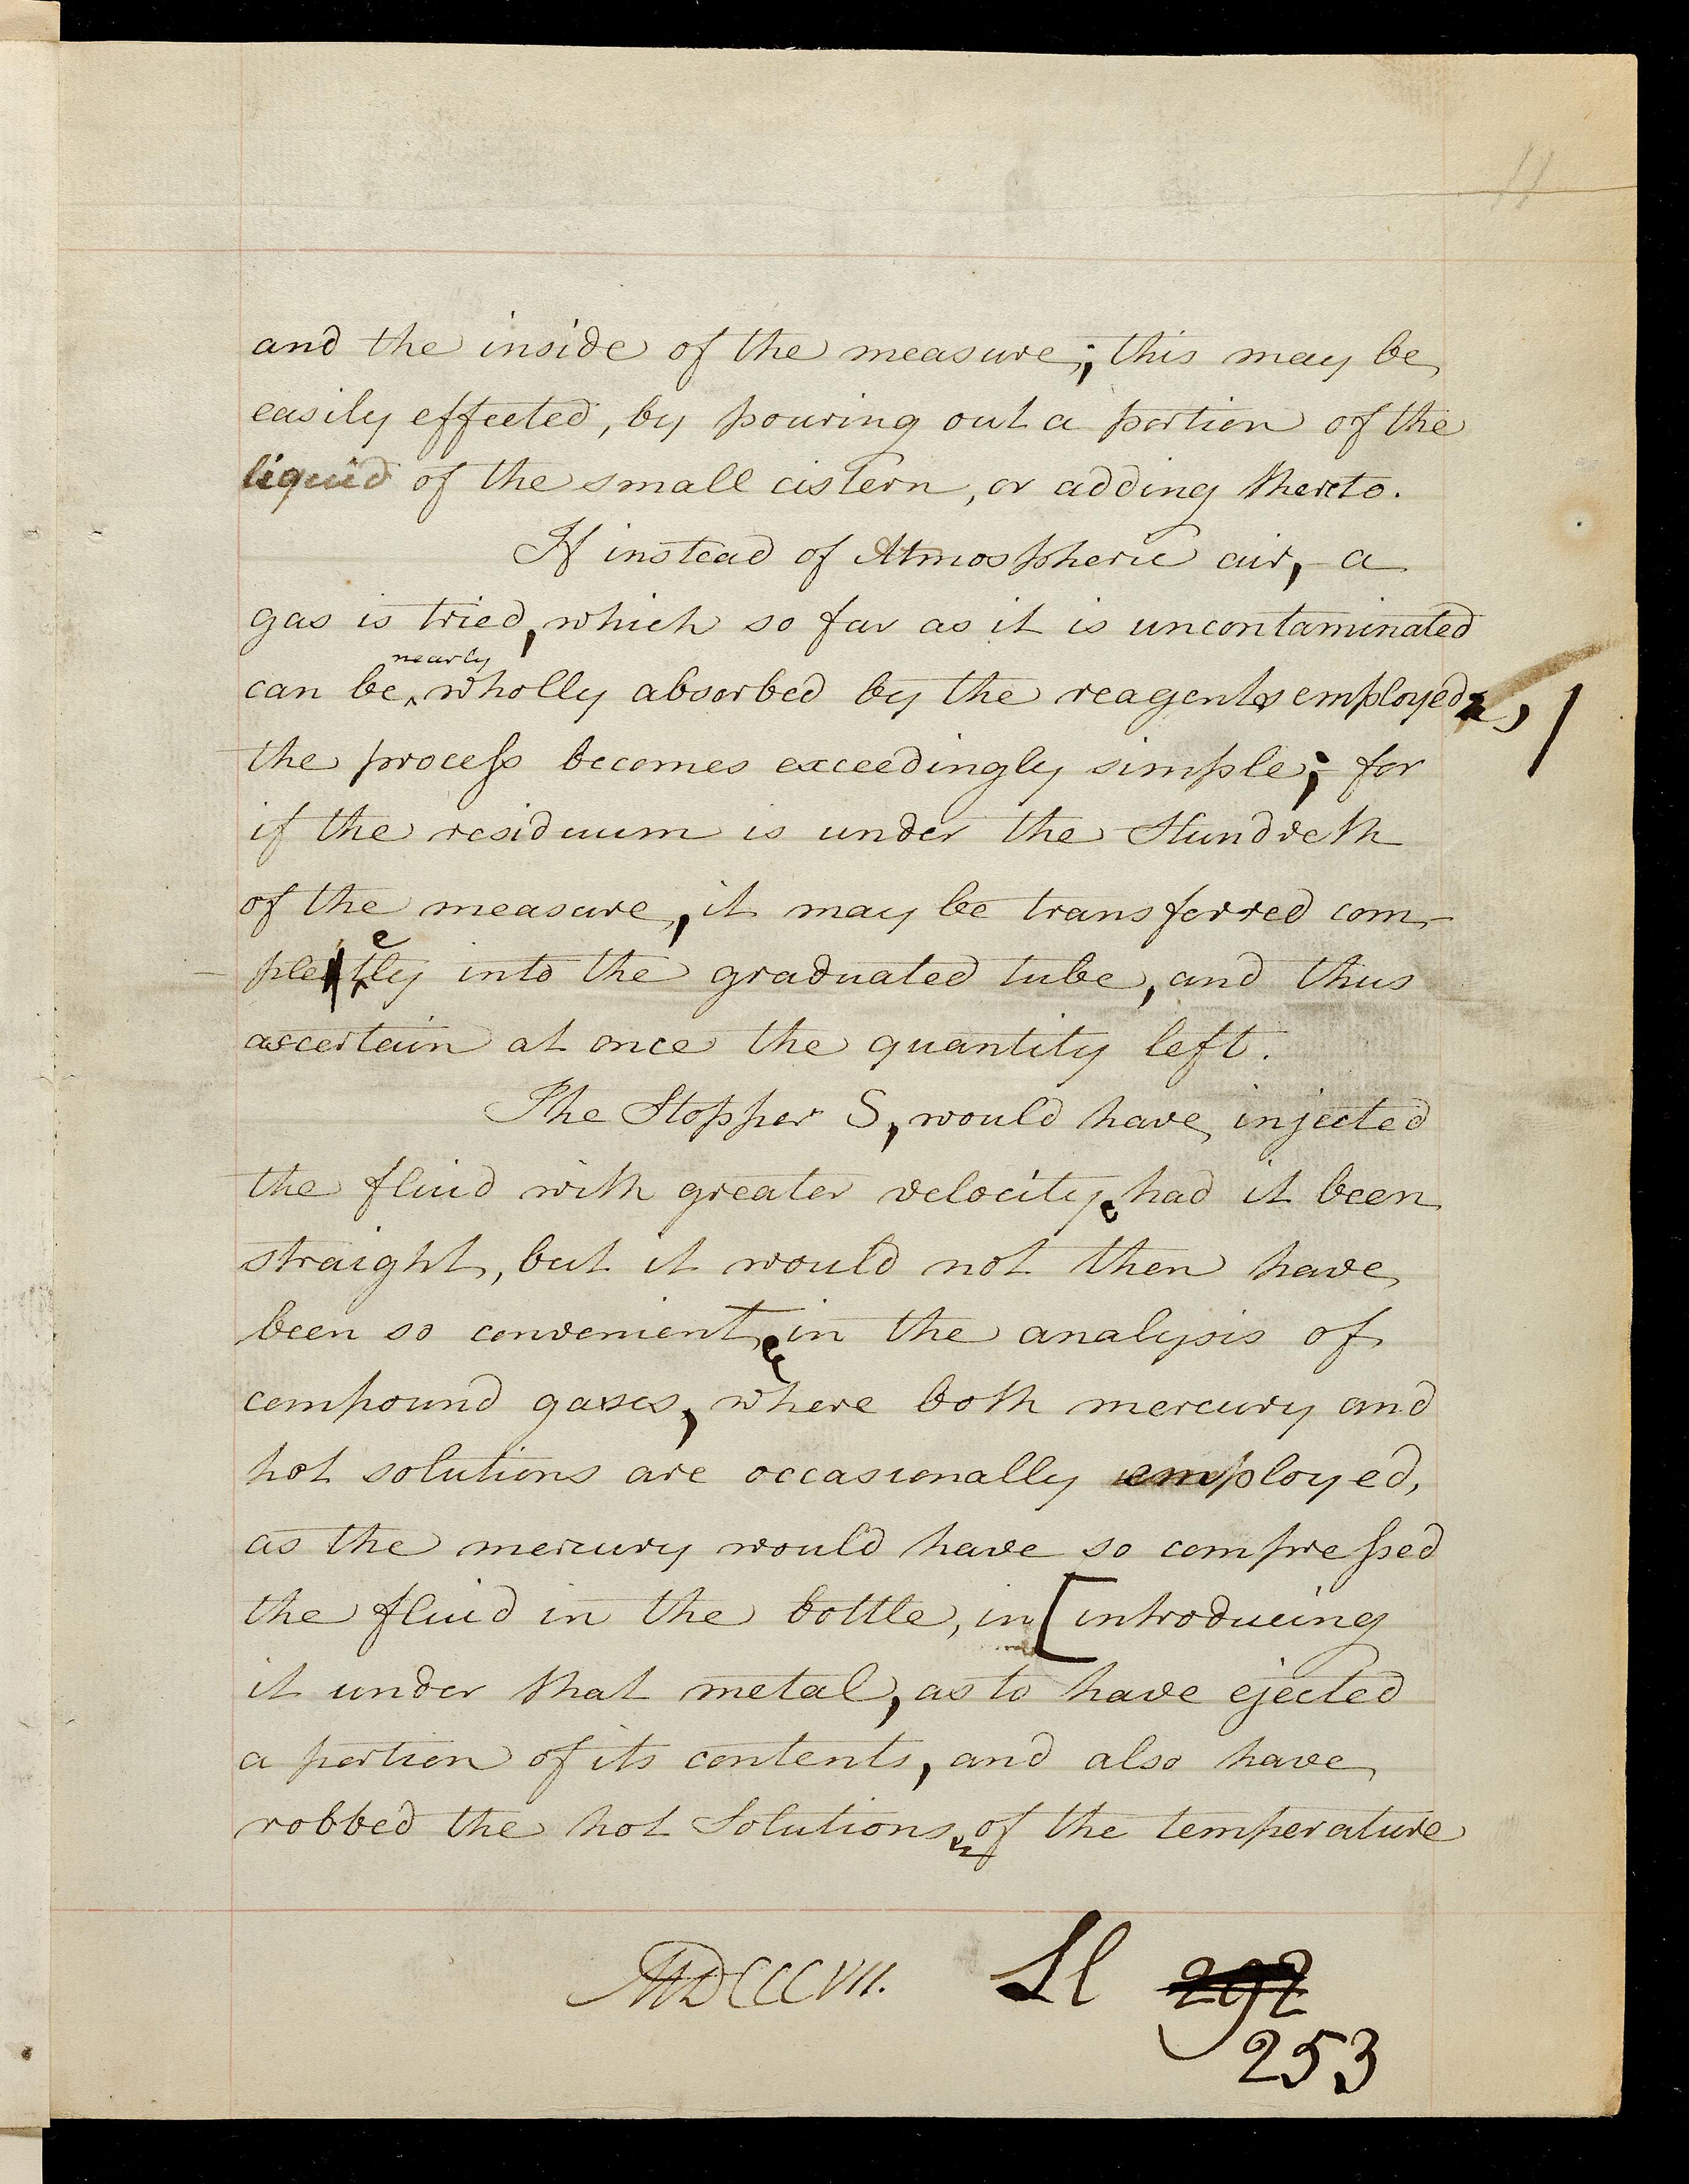 11
and the inside of the measure; this may be
easily effected, by pouring out a portion of the
liquid of the small cistern, or adding thereto.
If instead of Atmospheric air, a
gas is tried, which so far as it is uncontaminated
nearly
can be ‸ wholly absorbed by the reagents employed,
the process becomes exceedingly simple; for
if the residuum is under the Hundreth
of the measure, it may be transferred com-
e
pletly into the graduated tube, and thus
ascertain at once the quantity left.
The Stopper S, would have injected
the fluid with greater velocity had it been
straight, but it would not then have
been so convenient in the analysis of
compound gases, where both mercury and
hot solutions are occasionally employed,
as the mercury would have so compressed
the fluid in the bottle, in [introducing
it under that metal, as to have ejected
a portion of its contents, and also have
robbed the hot Solutions of the temperature
MDCCCVII. Ll 297
253